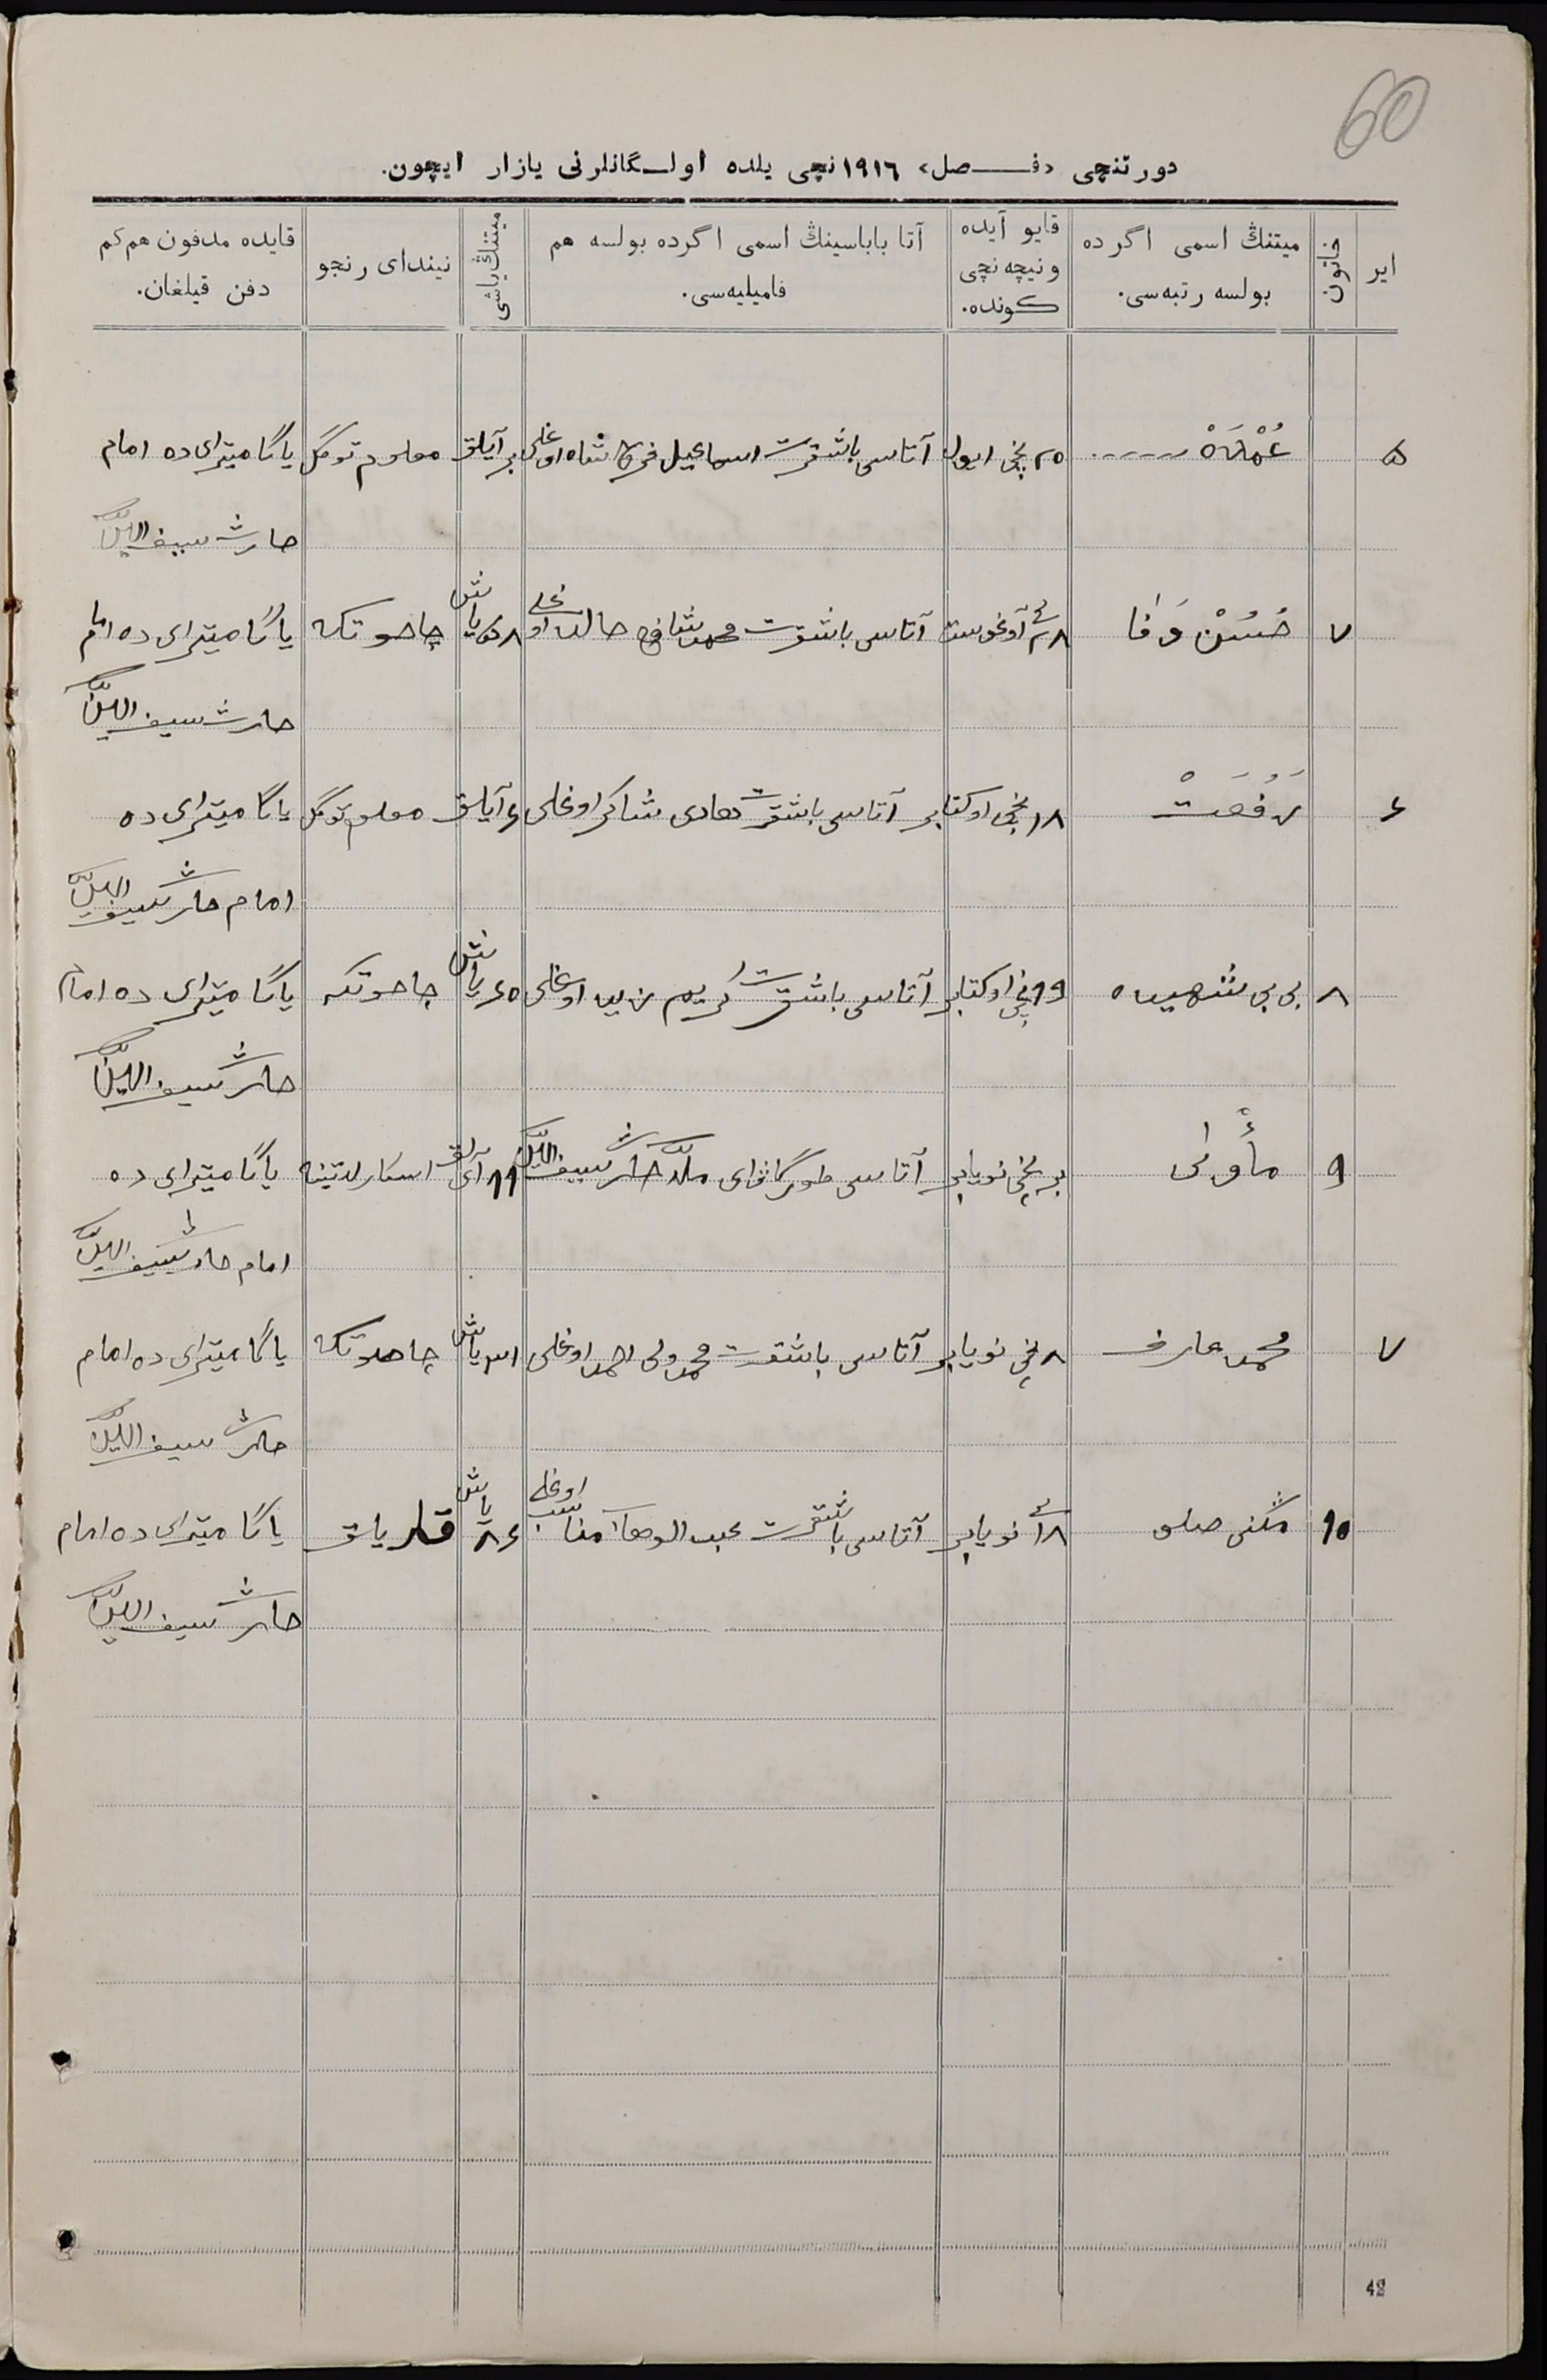 60
دورتنچی «فصل» ۱۹۱٦نچی یلده اولگانلرنی یازار ایچون.
ایر
خاتون
میتنڭ اسمی اگرده بولسه رتبه‌سی.
قایو آیده ونیچه نچی کونده.
آتا باباسینڭ اسمی اگرده بولسه هم فامیلیه‌سی.
میتنڭ یاشی
نیندای رنجو
قایده مدفون هم کم دفن قیلغان.
۵ ۲۵ نچی ایول آتاسی باشقرت اسماعیل اوغلی بر آیلق معلوم توگل یاڭا میتراي ده امام
حارث سیف الله
۷ حُسْن وَفا ۲۸ آوغوست آتاسی باشقرت محمدشافع اوغلی ۵۸ یاش چاحوتکه یاڭا میتراي ده امام
حارث سیف الله
۶ رفعت ۱۸ نچی اوکتابر آتاسی باشقرت هادی شاکر اوغلی ۶ آیلق معلوم توگل یاڭا میتراي ده
امام حارث سیف الله
۸ بی بی شهیده ۱۹ نچی اوکتابر آتاسی باشقرت کریم اوغلی ۶۵ یاش چاحوتکه یاڭا میتراي ده امام
حارث سیف الله
۹ مأوی بر نچی نویابر آتاسی ملا حارث سیف الله ۱۱ آیلق اسکارلاتینه یاڭا میتراي ده
امام حارث سیف الله
۷ محمد عارف ۸ نچی نویابر آتاسی باشقرت محمدولی احمد اوغلی ۳۱ یاش چاحوتکه یاڭا میتراي ده امام
حارث سیف الله
۱۰ مڭنی صلو ۱۸ نویابر آتاسی باشقرت عبدالوهاب اوغلی ۸۶ یاش قاریلق یاڭا میتراي ده امام
حارث سیف الله
42